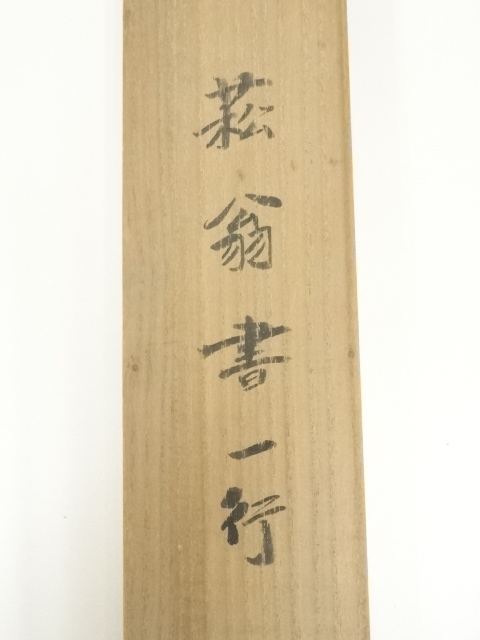 菘翁書一行